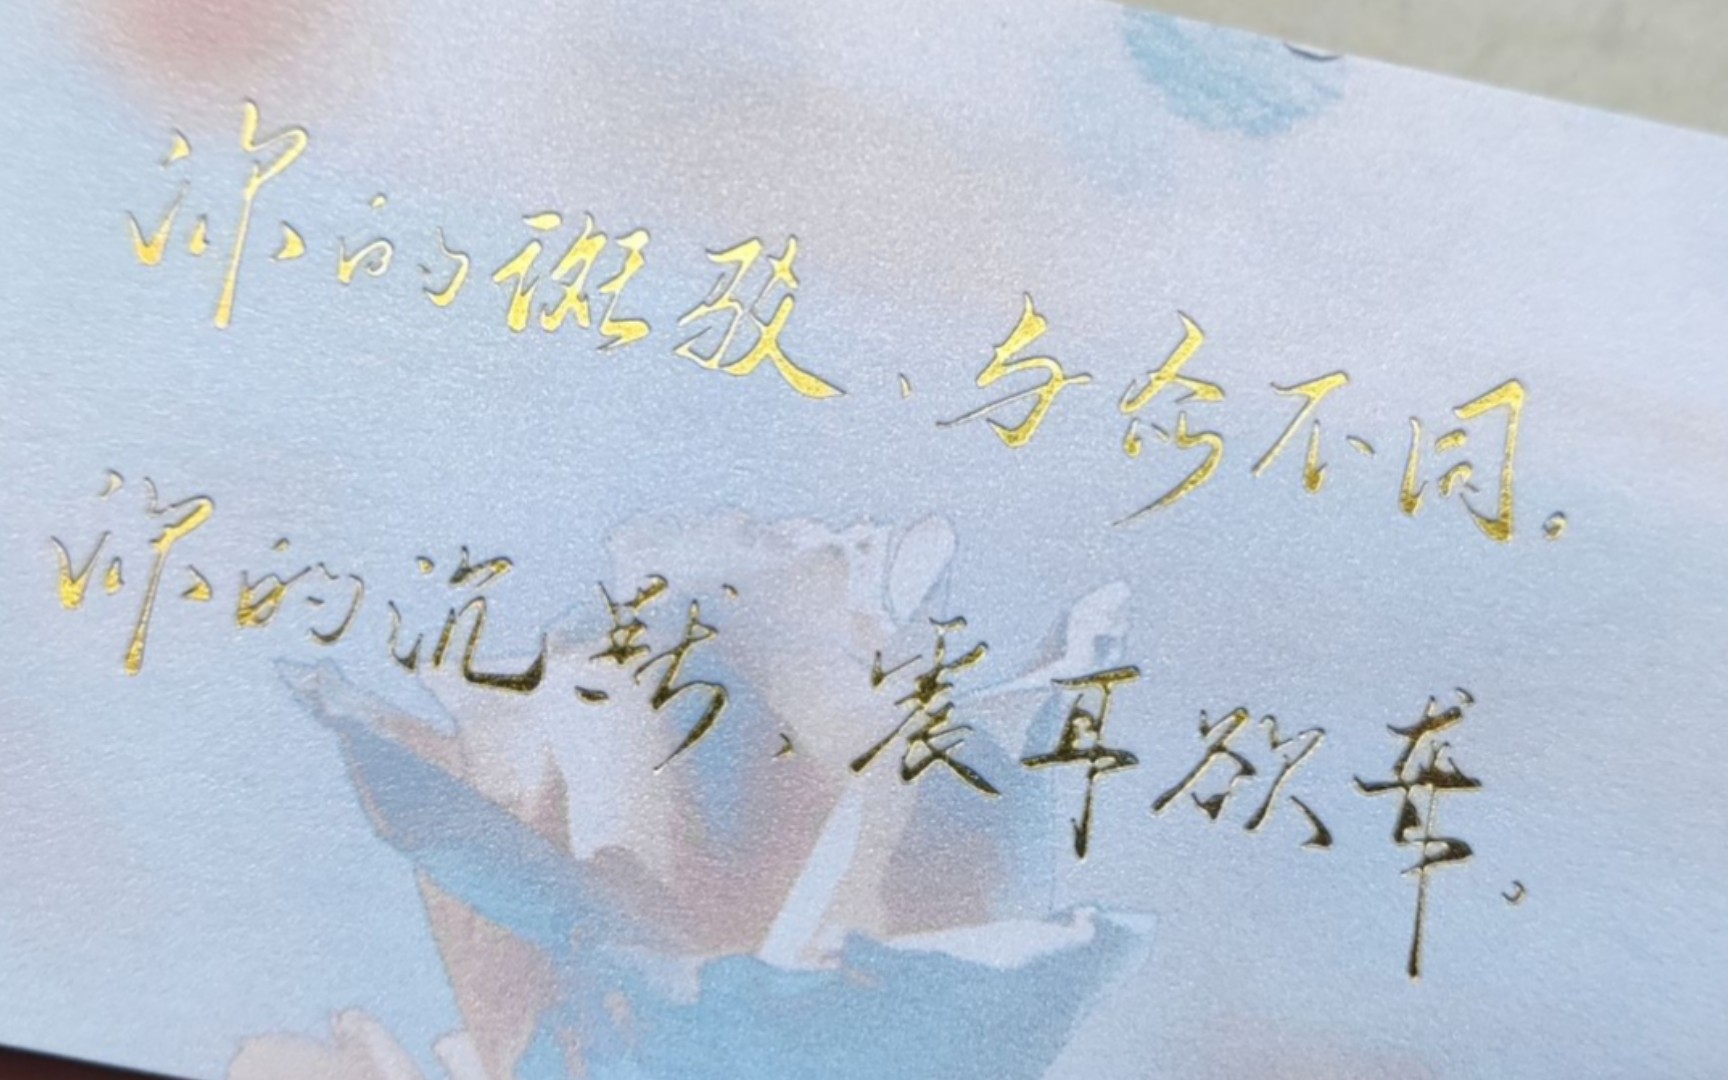 你的斑驳、与众不同。
你的沉默、震耳欲聋。